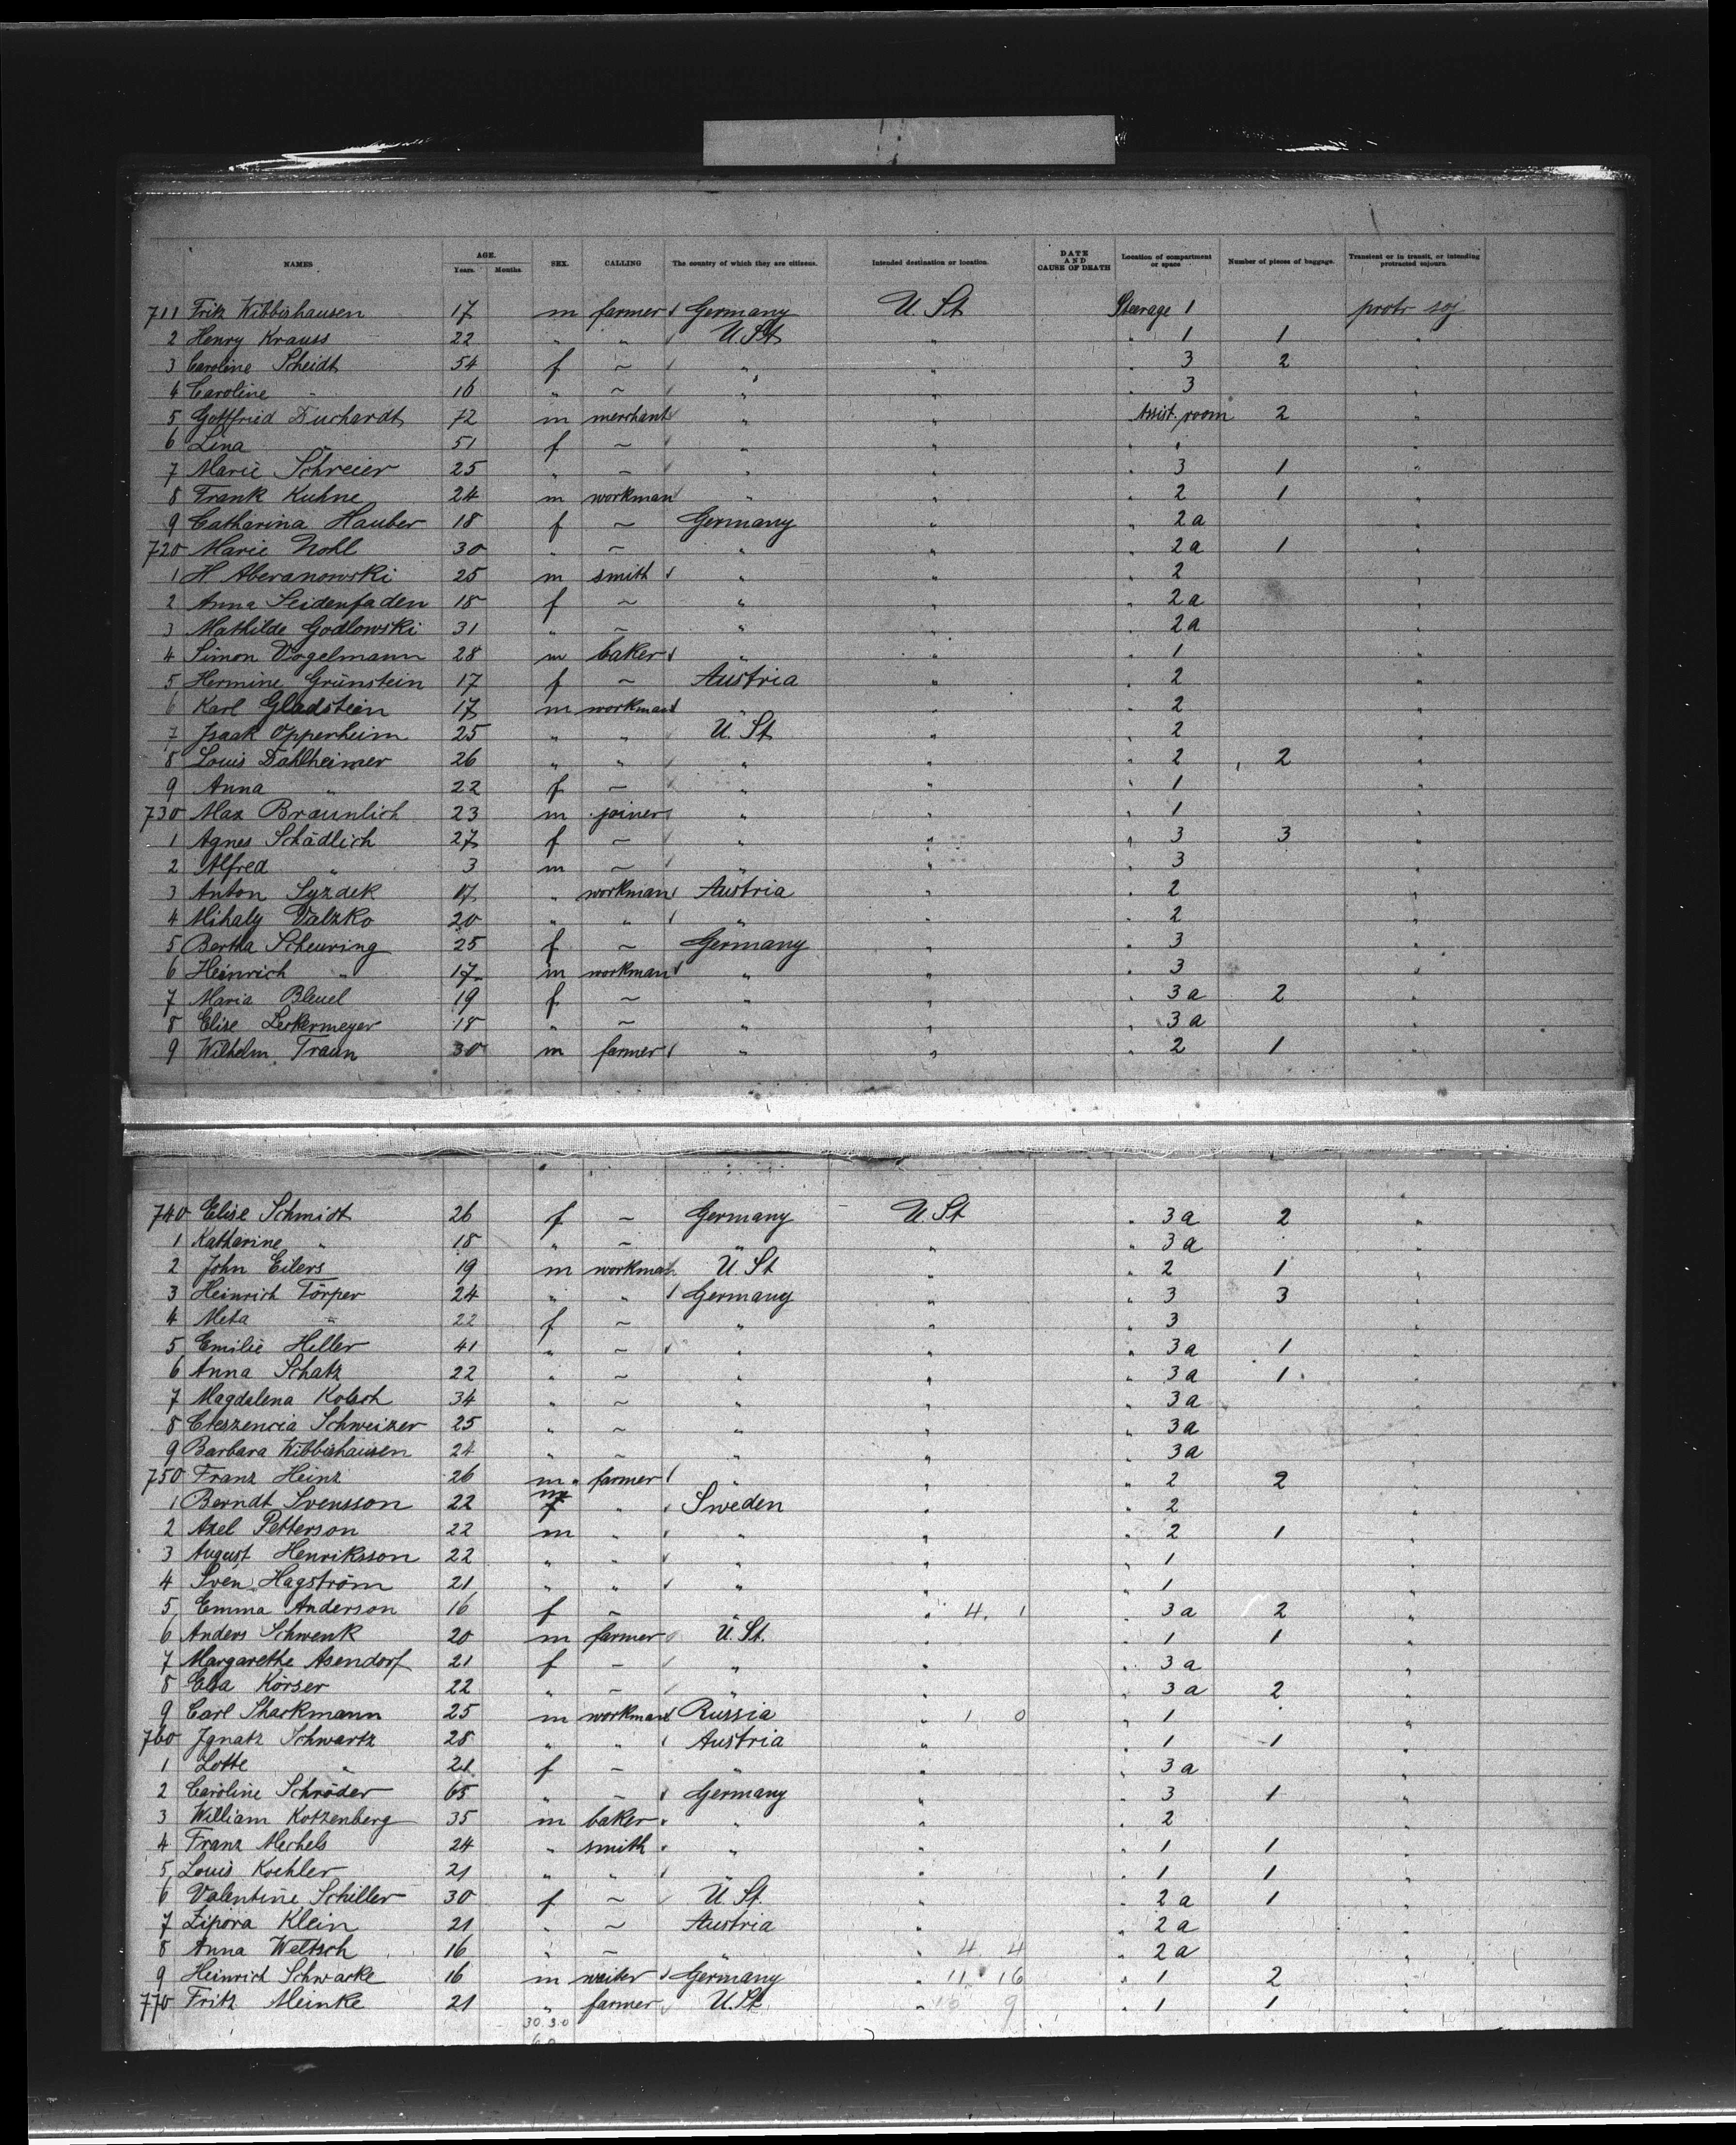 NAMES AGE. Years. Months. SEX. CALLING The country of which they are citizens. Intended destination or location. DATE AND CAUSE OF DEATH Location of compartment or space Number of pieces of baggage. Transient or in transit, or intending protracted sojourn.
711 Fritz Wibbishausen 17 m farmer Germany U St Steerage 1 protr soj
2 Henry Krauss 22 " " U. St. " " 1 1 "
3 Caroline Scheidt 54 f ~ " " " 3 2 "
4 Caroline " 16 " ~ " " " 3 "
5 Gottfried Durhardt 72 m merchant " " Assist. room 2 "
6 Lina " 51 f ~ " " " "
7 Marie Schreier 25 " ~ " " " 3 1 "
8 Frank Kuhne 24 m workman " " " 2 1 "
9 Catharina Hauber 18 f ~ Germany " " 2a "
720 Marie Nohl 30 " ~ " " " 2a 1 "
1 H Aberanowski 25 m smith " " " 2 "
2 Anna Seidenfaden 18 f ~ " " " 2a "
3 Mathilde Godlowski 31 " ~ " " " 2a "
4 Simon Vogelmann 28 m baker " " " 1 "
5 Hermine Grünstein 17 f ~ Austria " " 2 "
6 Karl Gladstein 17 m workman " " " 2 "
7 Isaak Oppenheim 25 " " U. St " " 2 "
8 Louis Dahlheimer 26 " " " " " 2 2 "
9 Anna " 22 f ~ " " " 1 "
730 Max Braunlich 23 m joiner " " " 1 "
1 Agnes Schädlich 27 f ~ " " " 3 3 "
2 Alfred " 3 m ~ " " " 3 "
3 Anton Syzdek 17 " workman Austria " " 2 "
4 Mihaly Valzko 20 " " " " " 2 "
5 Bertha Scheuring 25 f ~ Germany " " 3 "
6 Heinrich " 17 m workman " " " 3 "
7 Maria Bleuel 19 f ~ " " " 3a 2 "
8 Elise Leckermeyer 18 " ~ " " " 3a "
9 Wilhelm Traun 30 m farmer " " " 2 1 "
740 Elise Schmidt 26 f ~ Germany U. St " 3a 2 "
1 Katharine " 18 " ~ " " " 3a "
2 John Eilers 19 m workman U St " " 2 1 "
3 Heinrich Törper 24 " " Germany " " 3 3 "
4 Meta " 22 f ~ " " " 3 "
5 Emilie Hiller 41 " ~ " " " 3a 1 "
6 Anna Schatz 22 " ~ " " " 3a 1 "
7 Magdalena 34 " ~ " " " 3a "
8 Creszencia Schweizer 25 " ~ " " " 3a "
9 Barbara Wibbishausen 24 " ~ " " " 3a "
750 Franz Heinz 26 m farmer " " " 2 2 "
1 Berndt Svensson 22 m " Sweden " " 2 "
2 Axel Petterson 22 m " " " " 2 1 "
3 August Henriksson 22 " " " " " 1 "
4 Sven Hagström 21 " " " " " 1 "
5 Emma Anderson 16 f ~ " " 4. 1 " 3a 2 "
6 Anders Schwenk 20 m farmer U. St. " " 1 1 "
7 Margarethe Asendorf 21 f ~ " " " 3a "
8 Elsa Körser 22 " ~ " " " 3a 2 "
9 Carl Sharkmann 25 m workman Russia " 1 0 " 1 "
760 Ignatz Schwartz 28 " " Austria " " 1 1 "
1 Lotte " 21 f ~ " " " 3a "
2 Caroline Schröder 65 " ~ Germany " " 3 1 "
3 William Kotzenberg 35 m baker " " " 2 "
4 Franz Mechels 24 " smith " " " 1 1 "
5 Louis Koehler 21 " " " " " 1 1 "
6 Valentine Schiller 30 f ~ U. St. " " 2a 1 "
7 Zipora Klein 21 " ~ Austria " " 2a "
8 Anna Weltsch 16 " ~ " " 4 4 " 2a "
9 Heinrich Schwarke 16 m waiter Germany " 11 16 " 1 2 "
770 Fritz Meinke 21 " farmer U. St " 10 9 " 1 1 "
30.30